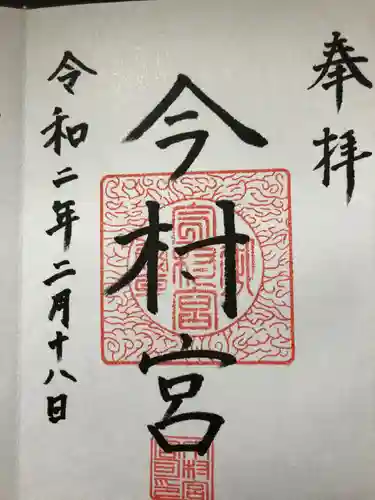 奉拝
今村宮
令和二年二月十八日